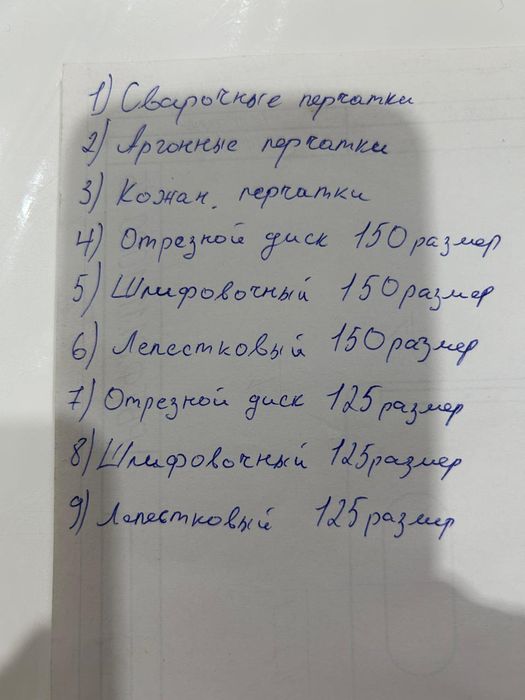 1) Сварочные перчатки
2) Аргонные перчатки
3) Кожан. перчатки
4) Отрезной диск 150 размер
5) Шлифовочный 150 размер
6) Лепестковый 150 размер
7) Отрезной диск 125 размер
8) Шлифовочный 125 размер
9) Лепестковый 125 размер